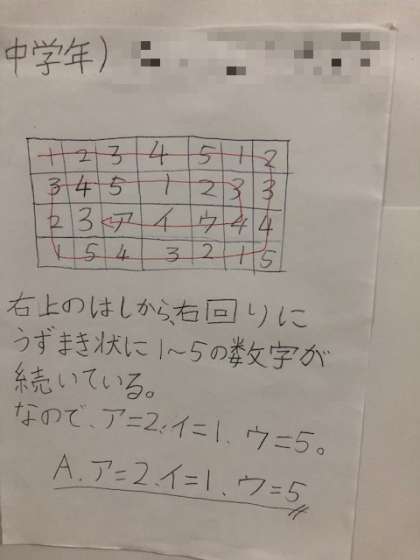 中学年)
1 2 3 4 5 1 2
3 4 5 1 2 3 3
2 3 ア イ ウ 4 4
1 5 4 3 2 1 5
右上のはしから、右回りに
うずまき状に1~5の数字が
続いている。
なので、ア=2、イ=1、ウ=5。
A.ア=2、イ=1、ウ=5